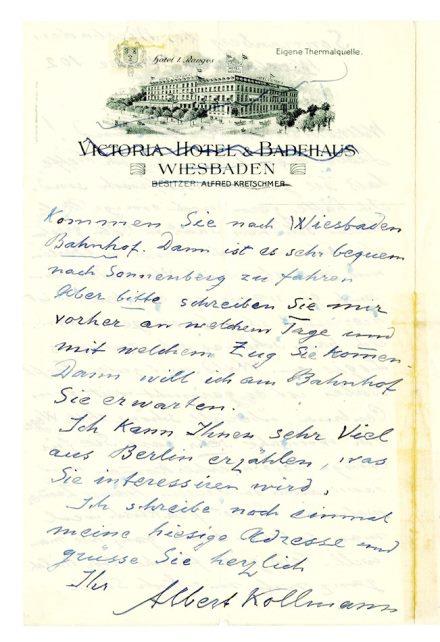 Hotel I. Ranges
Eigene Thermalquelle.
VICTORIA HOTEL & BADEHAUS
WIESBADEN
BESITZER: ALFRED KRETSCHMER
Kommen Sie nach Wiesbaden
Bahnhof. Dann ist es sehr bequem
nach Sonnenberg zu fahren
Aber bitte schreiben Sie mir
vorher an welchem Tage und
mit welchem Zug Sie kom̅en.
Dann will ich am Bahnhof
Sie erwarten.
Ich kann Ihnen sehr viel
aus Berlin erzählen, was
Sie interessiren wird.
Ich schreibe noch einmal
meine hiesige Adresse und
grüsse Sie herzlich
Ihr
Albert Kollmann